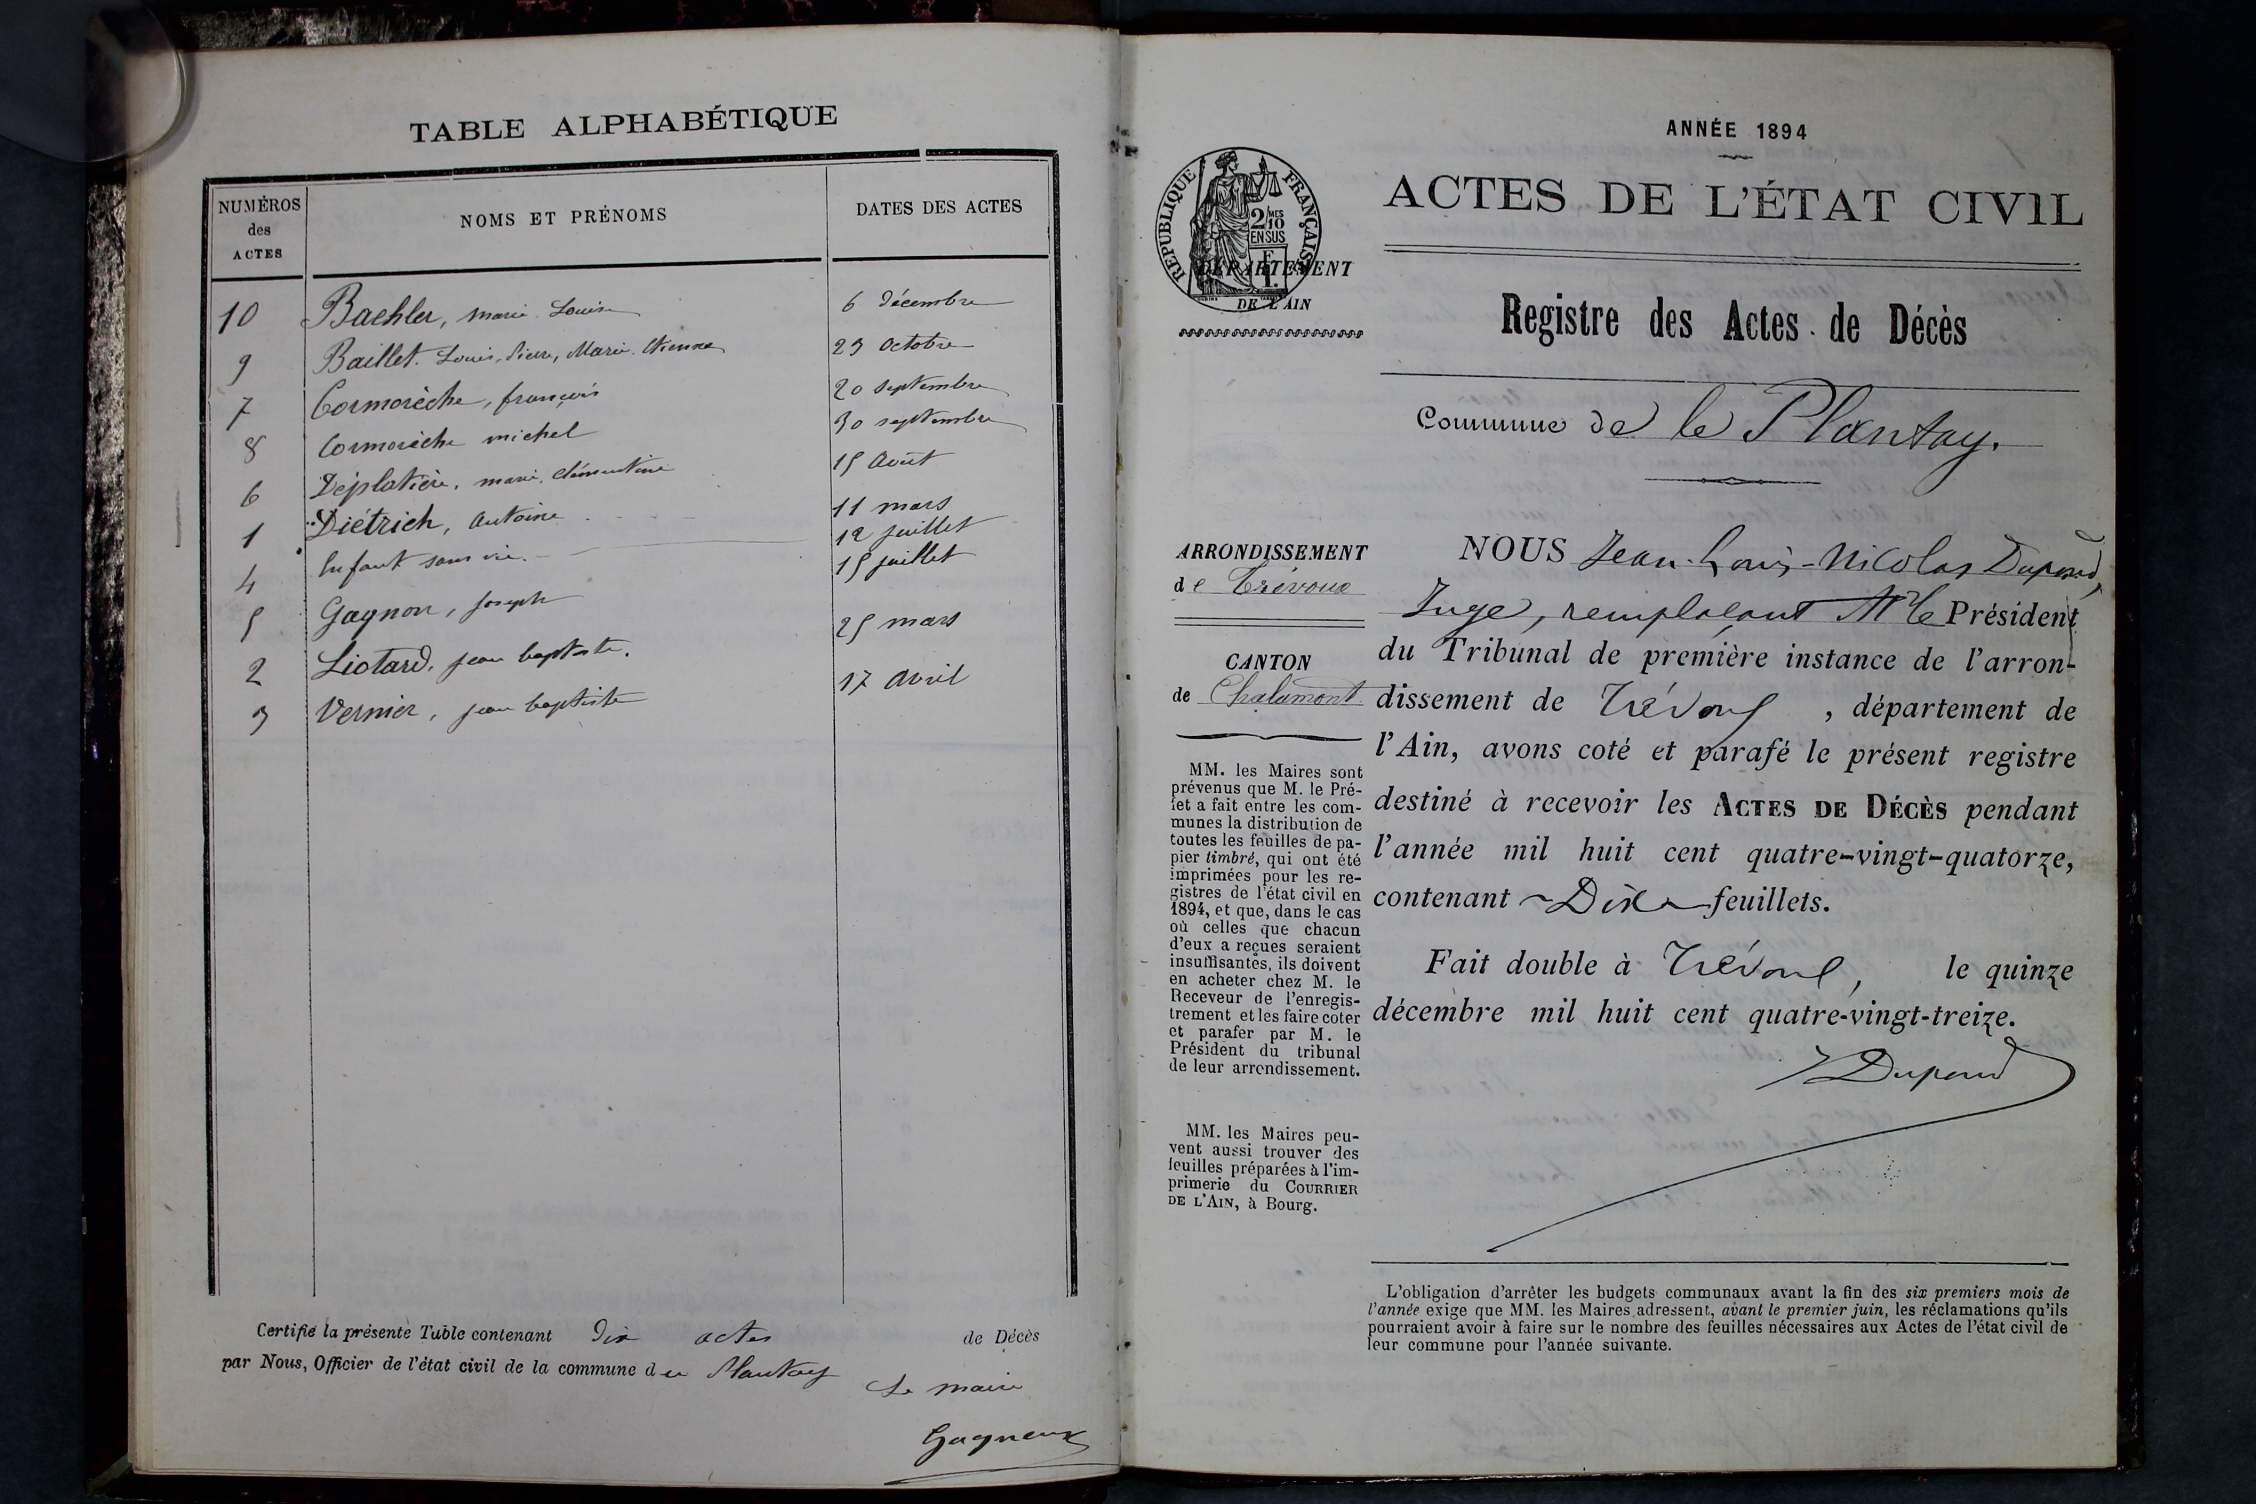 TABLE ALPHABÉTIQUE
NUMÉROS des ACTES
NOMS ET PRÉNOMS
DATES DES ACTES
10 Baehler, marie Louise 6 décembre
9 Baillet Louis, Pierre, Marie Etienne 23 octobre
7 Cormorèche, françois 20 septembre
8 Cormorèche michel 30 septembre
6 Déplatière, marie, clémentine 15 Août
1 Diétrich, antoine 11 mars
4 Enfant sans vie 12 juillet
5 Gagnon, joseph 15 juillet
2 Liotard, jean baptiste. 25 mars
3 Vernier, jean baptiste 17 avril
Certifié la présente Table contenant dix actes de Décès
par Nous, Officier de l'état civil de la commune du Plantay
Le maire
Gagneux
ANNÉE 1894
RÉPUBLIQUE FRANÇAISE
2/10 MES
EN SUS
DÉPARTEMENT
DE L'AIN
ACTES DE L'ÉTAT CIVIL
Registre des Actes de Décès
Commune de le Plantay.
ARRONDISSEMENT
de Trévoux
CANTON
de Chalamont
MM. les Maires sont
prévenus que M. le Pré-
fet a fait entre les com-
munes la distribution de
toutes les feuilles de pa-
pier timbré, qui ont été
imprimées pour les re-
gistres de l'état civil en
1894, et que, dans le cas
où celles que chacun
d'eux a reçues seraient
insuffisantes, ils doivent
en acheter chez M. le
Receveur de l'enregis-
trement et les faire coter
et parafer par M. le
Président du tribunal
de leur arrondissement.
MM. les Maires peu-
vent aussi trouver des
feuilles préparées à l'im-
primerie du COURRIER
DE L'AIN, à Bourg.
NOUS Jean-Louis-Nicolas Dupond,
Juge, remplaçant M le Président
du Tribunal de première instance de l'arron-
dissement de Trévoux, département de
l'Ain, avons coté et parafé le présent registre
destiné à recevoir les ACTES DE DÉCÈS pendant
l'année mil huit cent quatre-vingt-quatorze,
contenant Dix feuillets.
Fait double à Trévoux, le quinze
décembre mil huit cent quatre-vingt-treize.
Dupond
L'obligation d'arrêter les budgets communaux avant la fin des six premiers mois de
l'année exige que MM. les Maires adressent, avant le premier juin, les réclamations qu'ils
pourraient avoir à faire sur le nombre des feuilles nécessaires aux Actes de l'état civil de
leur commune pour l'année suivante.